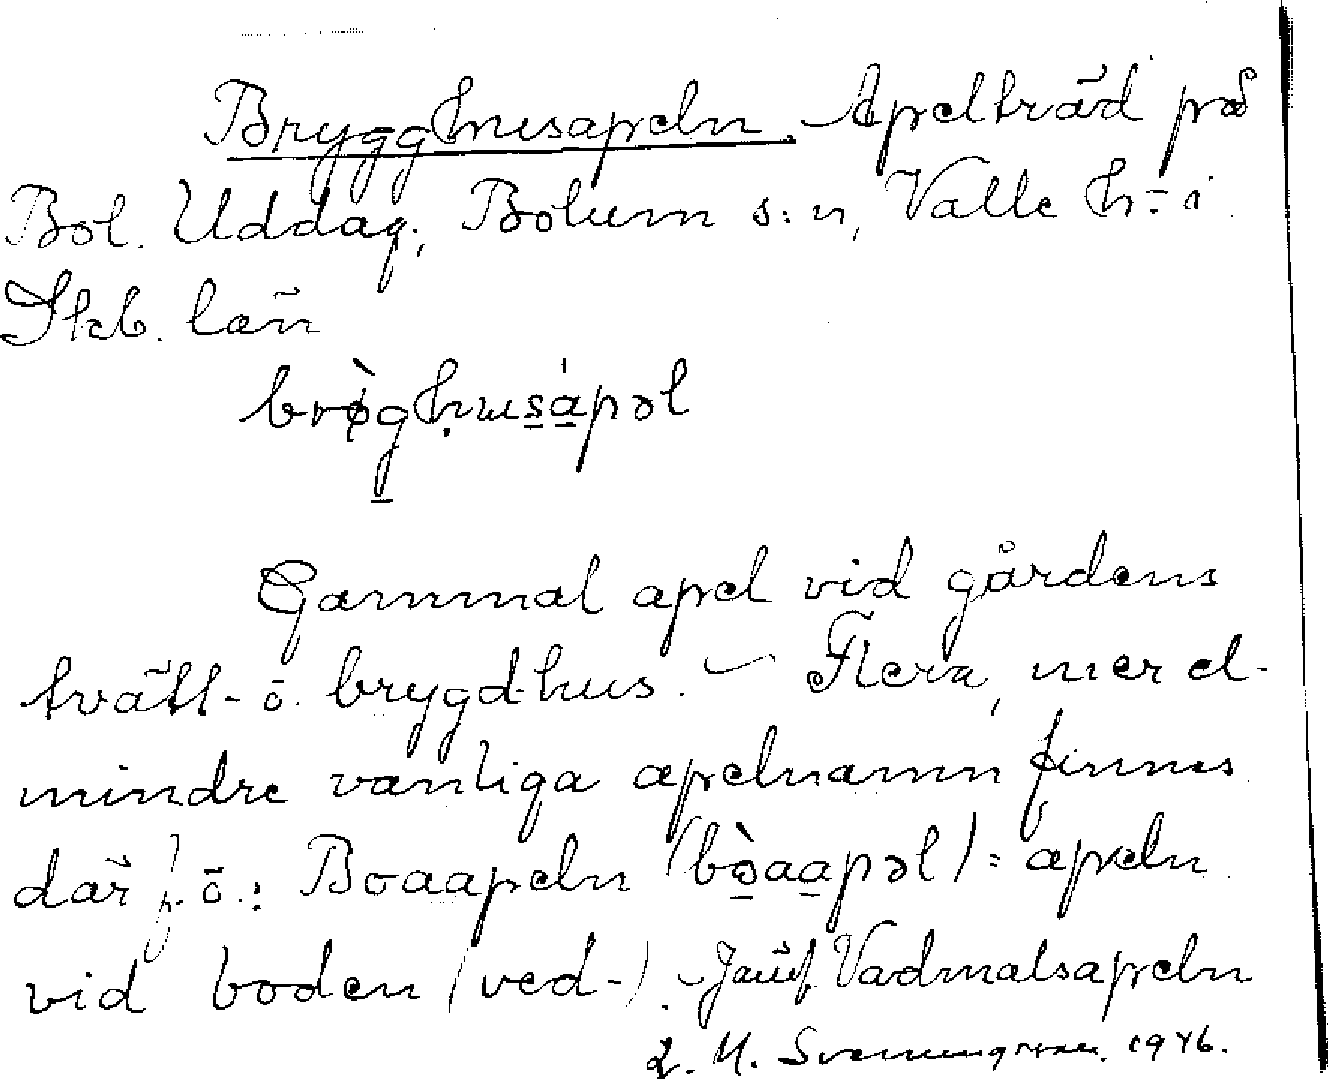 Brygghusapeln. - Apelträd på
Bol. Uddag., Bolum s:n, Valle h-i
Skb. län
brø̀ghusápəl
Gammal apel vid gårdens
tvätt- ö. brygdhus. - Flera, mer el-
mindre vanliga apelnamn finnes
där f. ö.: Boaapeln (bòaapəl) = apeln
vid boden (ved-). - Jämf. Vadmalsapeln
1946.